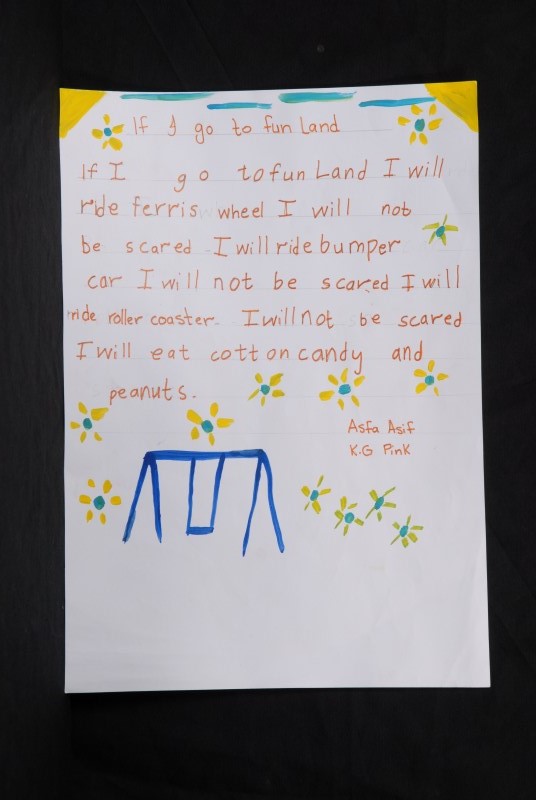 If I go to fun Land
If I go to fun Land I will
ride ferris wheel I will not
be scared I will ride bumper
car I will not be scared I will
ride roller coaster. I will not be scared
I will eat cotton candy and
peanuts.
Asfa Asif
K.G Pink